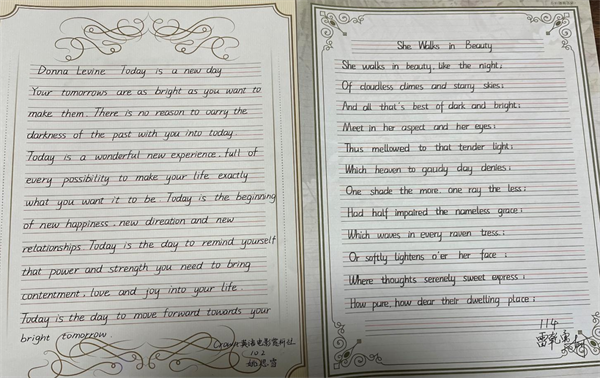 Donna Levine Today is a new day
Your tomorrows are as bright as you want to
make them. There is no reason to carry the
darkness of the past with you into today.
Today is a wonderful new experience, full of
every possibility to make your life exactly
what you want it to be. Today is the beginning
of new happiness, new direation and new
relationships. Today is the day to remind yourself
that power and strength you need to bring
contentment, love and joy into your life.
Today is the day to move forward towards your
bright tomorrow.
英语电影赏析社
102
She Walks in Beauty
She walks in beauty, like the night,
Of cloudless climes and starry skies;
And all that's best of dark and bright;
Meet in her aspect and her eyes;
Thus mellowed to that tender light;
Which heaven to gaudy day denies;
One shade the more, one ray the less;
Had half impaired the nameless grace;
Which waves in every raven tress;
Or softly lightens o'er her face ;
Where thoughts serenely sweet express ;
How pure, how dear their dwelling place ;
114